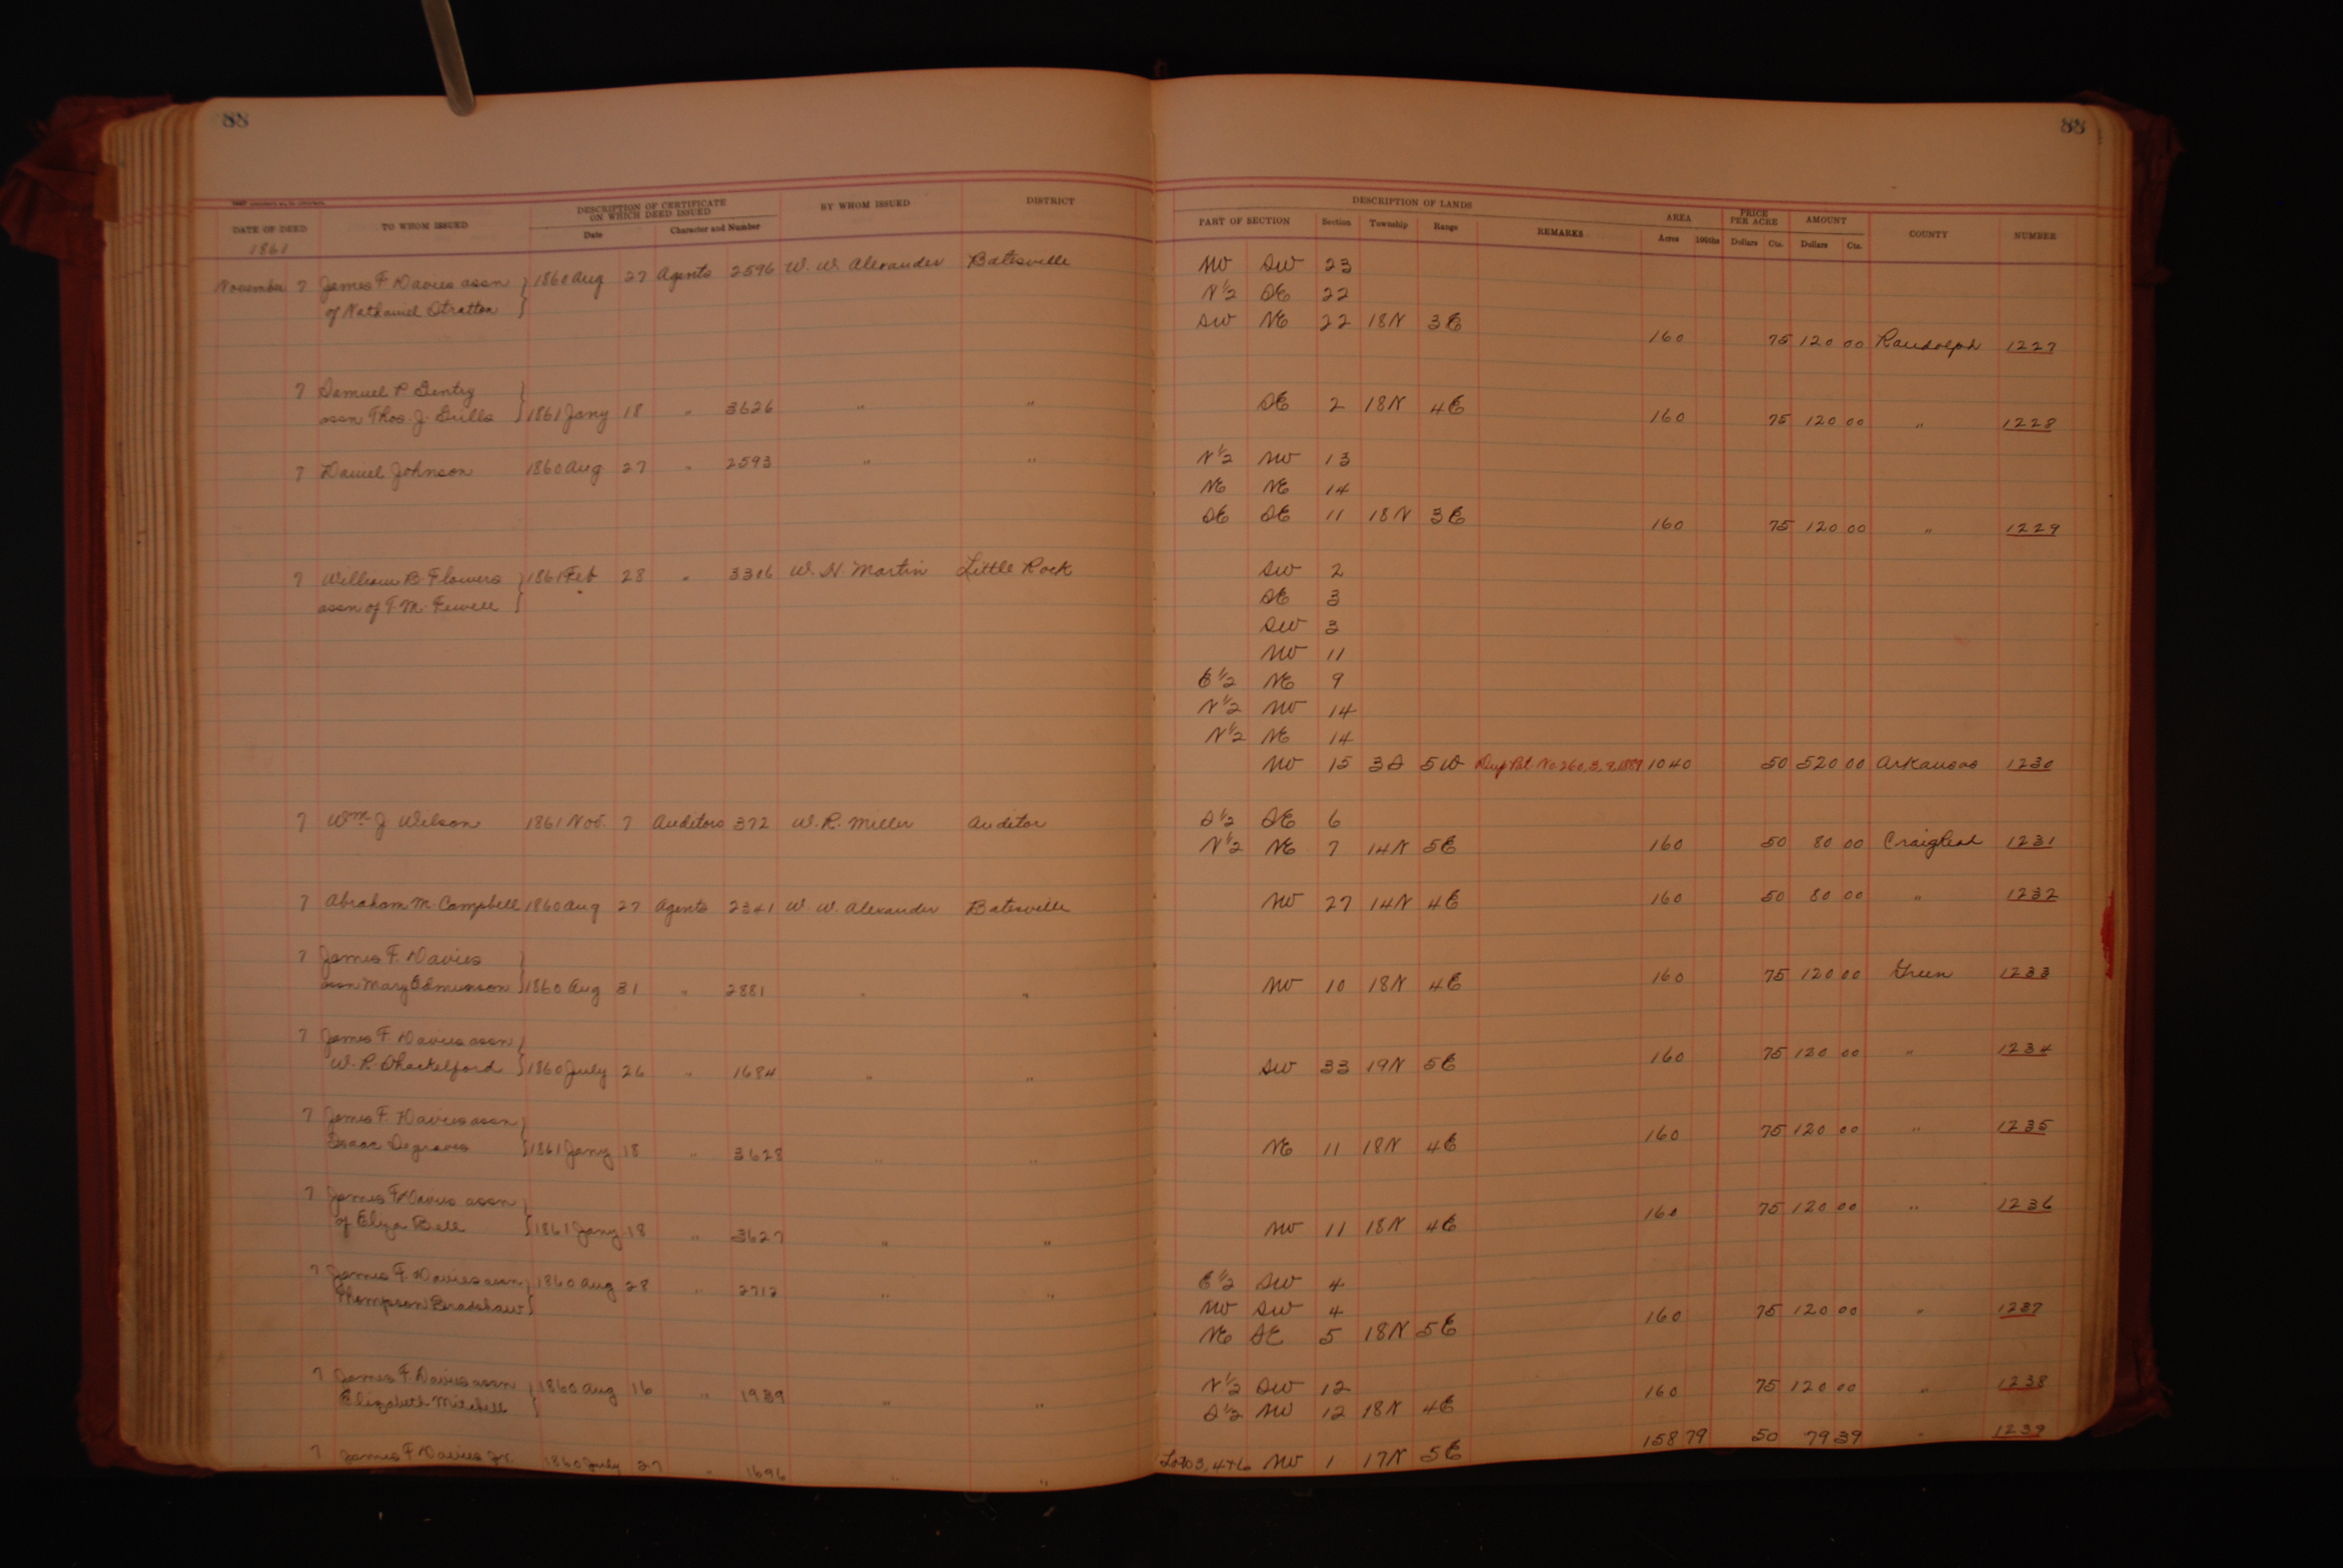 88
88
DATE OF DEED
TO WHOM ISSUED
DESCRIPTION OF CERTIFICATE
ON WHICH DEED ISSUED
Date
Character and Number
BY WHOM ISSUED
DISTRICT
DESCRIPTION OF LANDS
PART OF SECTION
Section
Township
Range
REMARKS
AREA
Acres
100ths
PRICE
PER ACRE
Dollars
Cts.
AMOUNT
Dollars
Cts.
COUNTY
NUMBER
1861
November 7 James F. Davies assn } 1860 Aug 27 Agents 2596 W. W. Alexander Batesville NW SW 23
of Nathaniel Stratton N½ SE 22
SW NE 22 18N 3E 160 75 120 00 Randolph 1227
7 Samuel P Gentry
assn Thos. J. Grills } 1861 Jany 18 " 3626 " " SE 2 18N 4E 160 75 120 00 " 1228
7 Daniel Johnson 1860 Aug 27 " 2593 " " N½ NW 13
NE NE 14
SE SE 11 18N 3E 160 75 120 00 " 1229
7 William B. Flowers } 1861 Feb 28 " 3306 W. H. Martin Little Rock SW 2
assn of T. M. Fewell SE 3
SW 3
NW 11
E½ NE 9
N½ NW 14
N½ NE 14
NW 15 3S 5W Dup Pat. No 260, 3, 9, 1889 1040 50 520 00 Arkansas 1230
7 Wm J Wilson 1861 Nov. 7 Auditors 372 W. R. Miller Auditor S½ SE 6
N½ NE 7 14N 5E 160 50 80 00 Craighead 1231
7 Abraham M. Campbell 1860 Aug 27 Agents 2341 W. W. Alexander Batesville NW 27 14N 4E 160 50 80 00 " 1232
7 James F. Davies
assn Mary Edmunson } 1860 Aug 31 " 2881 " " NW 10 18N 4E 160 75 120 00 Green 1233
7 James F. Davies assn
W. R. Shackelford } 1860 July 26 " 1684 " " SW 33 19N 5E 160 75 120 00 " 1234
7 James F. Davies assn
Isaac Degraves } 1861 Jany 18 " 3628 " " NE 11 18N 4E 160 75 120 00 " 1235
7 James F. Davies assn
of Eliza Bell } 1861 Jany 18 " 3627 " " NW 11 18N 4E 160 75 120 00 " 1236
7 James F. Davies assn } 1860 Aug 28 " 2712 " " E½ SW 4
Thompson Bradshaw NW SW 4
NE SE 5 18N 5E 160 75 120 00 " 1237
7 James F. Davies assn } 1860 Aug 16 " 1939 " " N½ SW 12
Elizabeth Mitchell S½ NW 12 18N 4E 160 75 120 00 " 1238
7 James F. Davies Jr. 1860 July 27 " 1696 " " Lots 3, 4 & 6 NW 1 17N 5E 158 79 50 79 39 " 1239